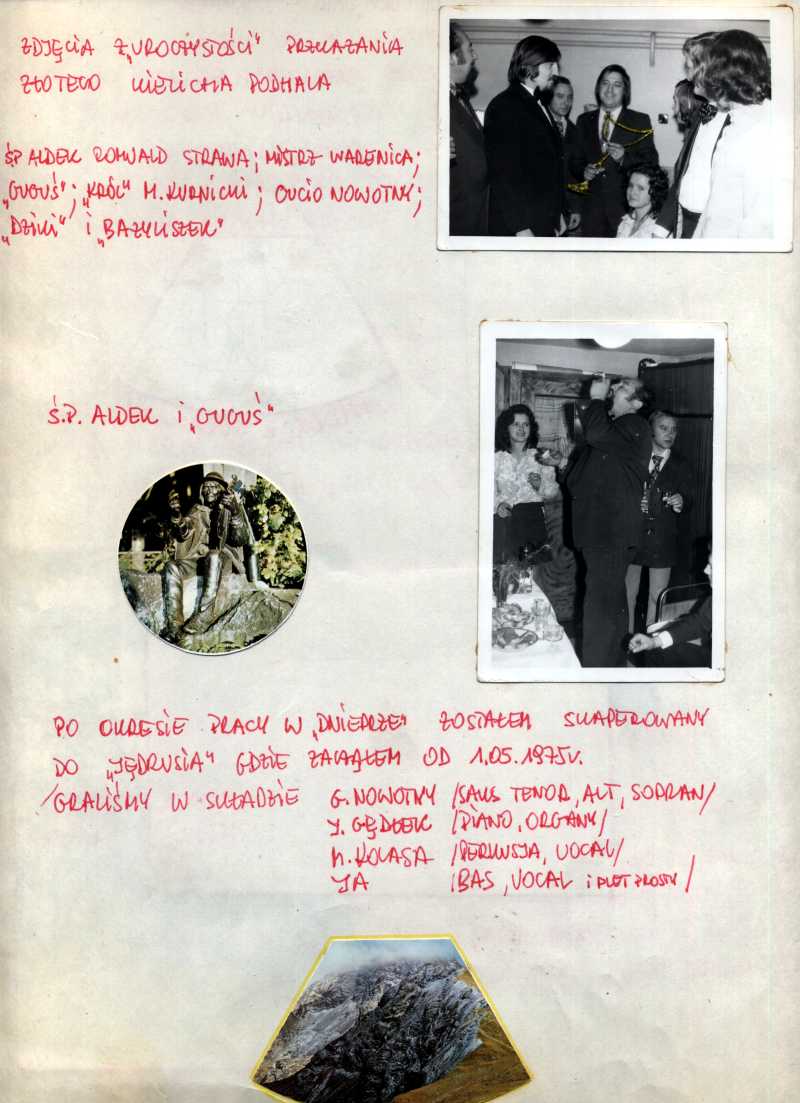 ZDJĘCIA Z „UROCZYSTOŚCI" PRZEKAZANIA
ZŁOTEGO KIELICHA PODHALA
ŚP ALDEK ROMUALD STRAWA; MISTRZ WARENICA;
„GUGUŚ"; „KRÓL" M. KURNICKI; GUCIO NOWOTNY;
„DZIKI" I „BAZYLISZEK"
Ś.P. ALDEK I „GUGUŚ"
PO OKRESIE PRACY W „DNIEPRZE" ZOSTAŁEM SKAPEROWANY
DO „JĘDRUSIA" GDZIE ZACZĄŁEM OD 1.05.1975r.
/GRALIŚMY W SKŁADZIE G. NOWOTNY /SAKS TENOR, ALT, SOPRAN/
J. GĘDŁEK /PIANO, ORGANY/
M. KOLASA /PERKUSJA, VOCAL/
JA /BAS, VOCAL i FLET PROSTY/